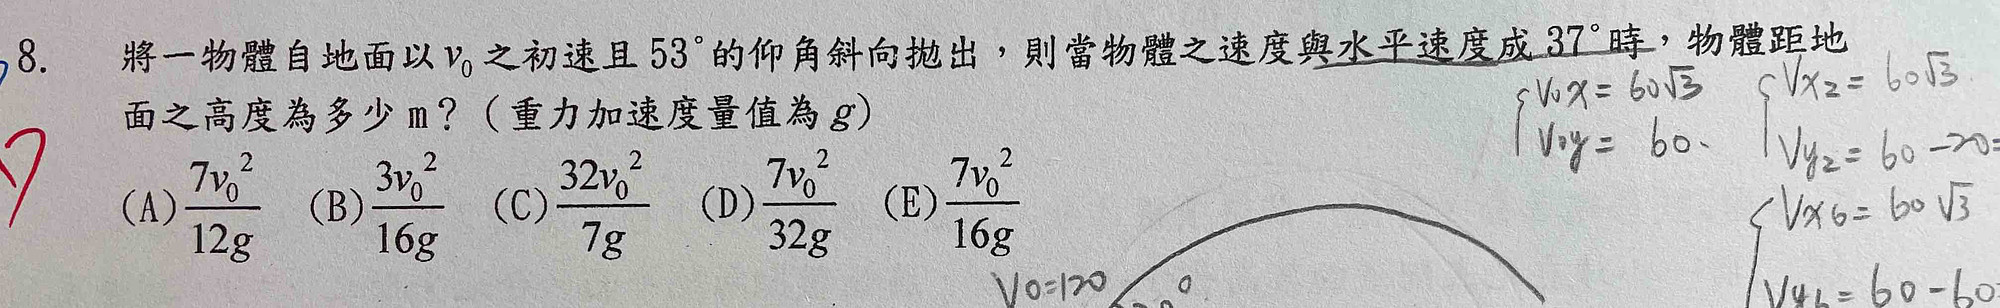 8. 將一物體自地面以 v₀ 之初速且 53°的仰角斜向拋出，則當物體之速度與水平速度成 37°時，物體距地
面之高度為多少 m？（重力加速度量值為 g）
(A) 7v₀²/12g (B) 3v₀²/16g (C) 32v₀²/7g (D) 7v₀²/32g (E) 7v₀²/16g
V₀x = 60√3
V₀y = 60
Vx₂ = 60√3
Vy₂ = 60 - 20 =
Vx₆ = 60√3
Vy₆ = 60 - 60
V₀=120